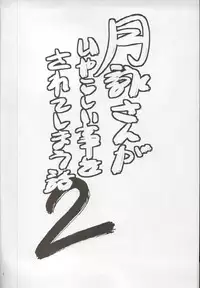 月詠さんが
いやこしい事を
されてしまう話
2